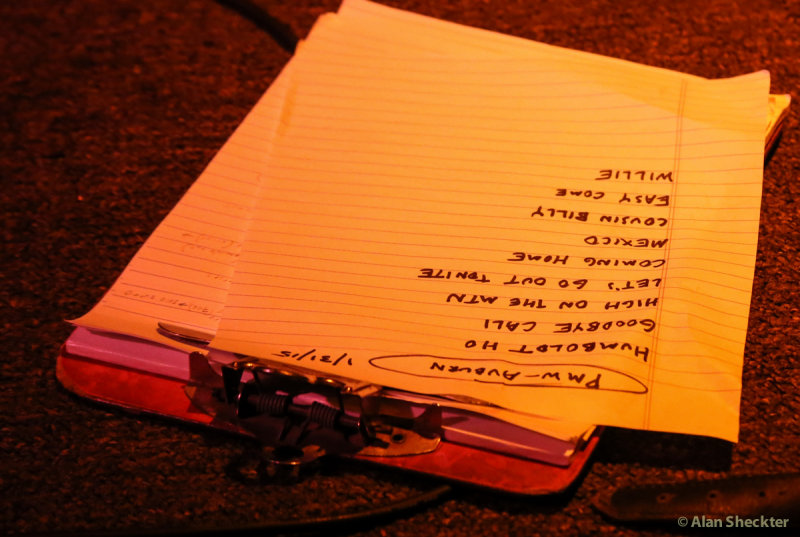 PMW-AUBURN 1/31/15
HUMBOLDT HO
GOODBYE CALI
HIGH ON THE MTN
LET'S GO OUT TONITE
COMING HOME
MEXICO
COUSIN BILLY
EASY COME
WILLIE
© Alan Sheckter